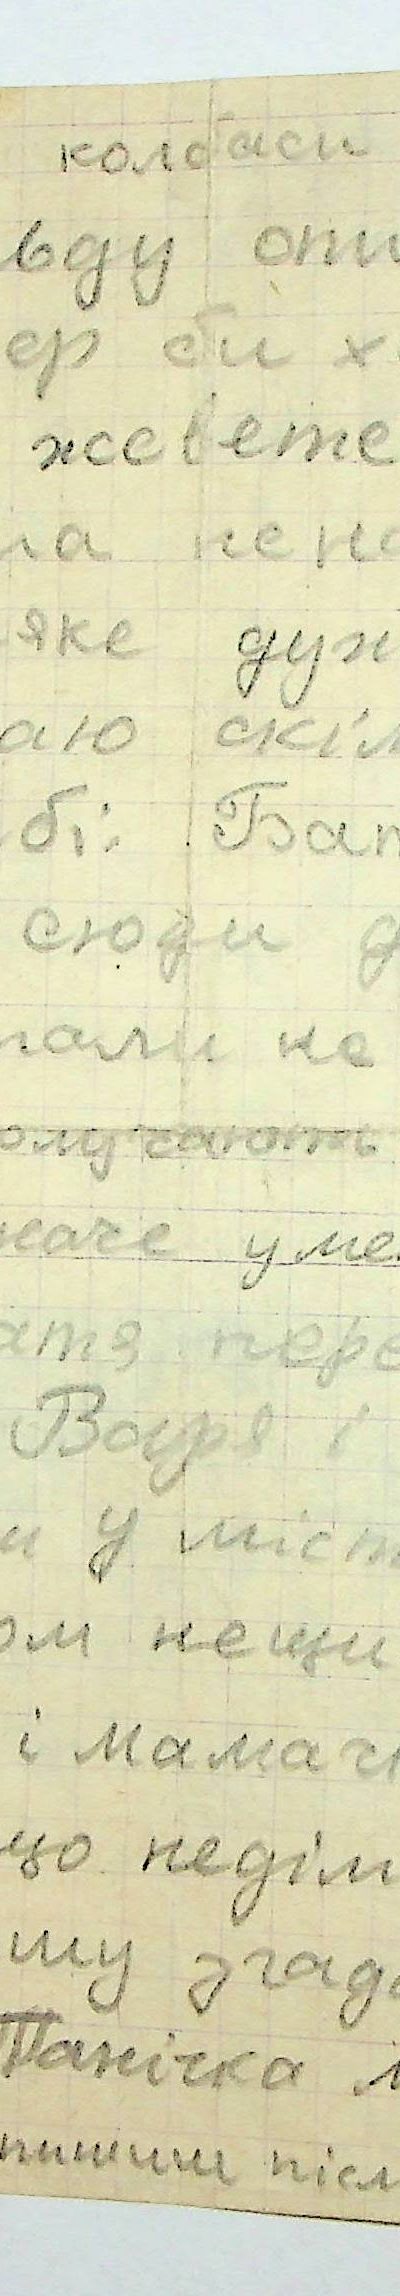 колбаси
вду опи
ер би х
жевете
ла нена
яке дуж
аю скіл
бі: Бат
сюди д
гали не
олучають
наче уме
атя пере
Варя і
и у міст
ом нещи
і мамачк
що неділи
шу згада
Панічка м
пишии післ